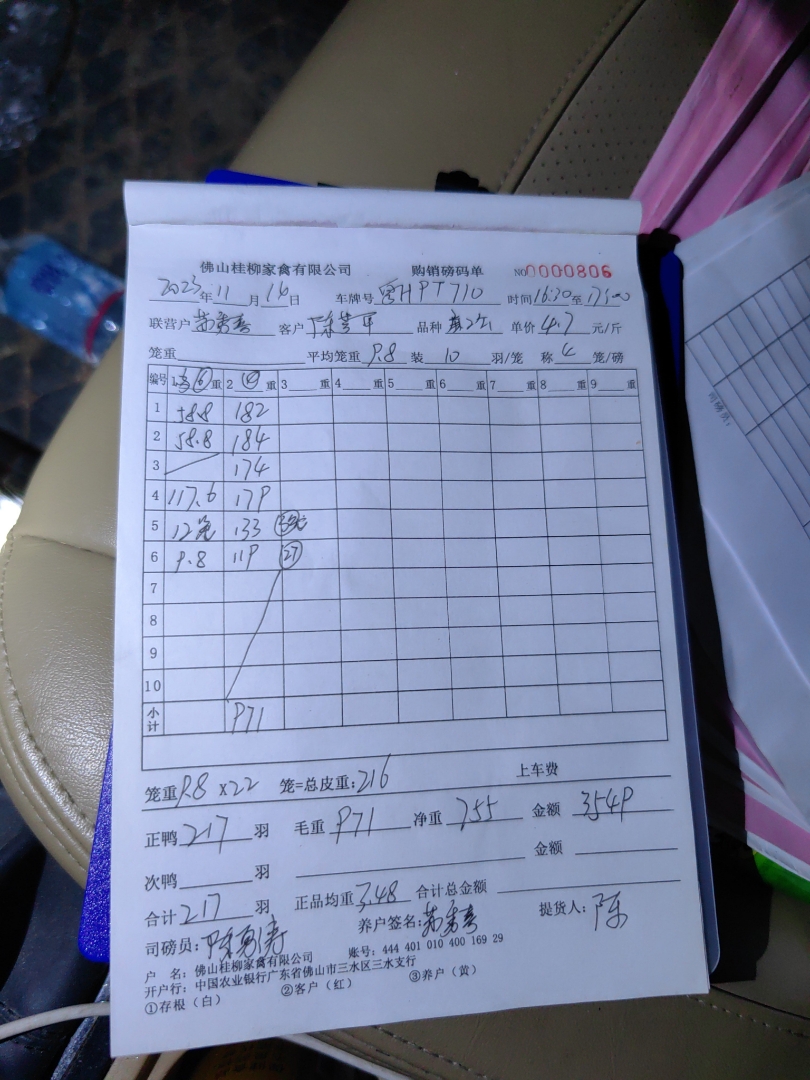 佛山桂柳家禽有限公司 购销磅码单 NO0000806
2023年11月16日 车牌号粤HPT710 时间16:30至17:00
联营户 客户 品种 单价4.7元/斤
笼重 平均笼重9.8装10羽/笼 称4笼/磅
编号 ⑥重 2④重 3重 4重 5重 6重 7重 8重 9重
1 58.8 182
2 58.8 184
3 174
4 117.6 179
5 12笼 133
6 9.8 119 27
7
8
9
10
小计 971
笼重9.8×22笼=总皮重:216 上车费
正鸭217羽 毛重971 净重755 金额3549
次鸭羽 金额
合计217羽 正品均重3.48 合计总金额
司磅员: 养户签名: 提货人:陈
户 名:佛山桂柳家禽有限公司 账号:444 401 010 400 169 29
开户行:中国农业银行广东省佛山市三水区三水支行
①存根(白) ②客户(红) ③养户(黄)
司磅员: